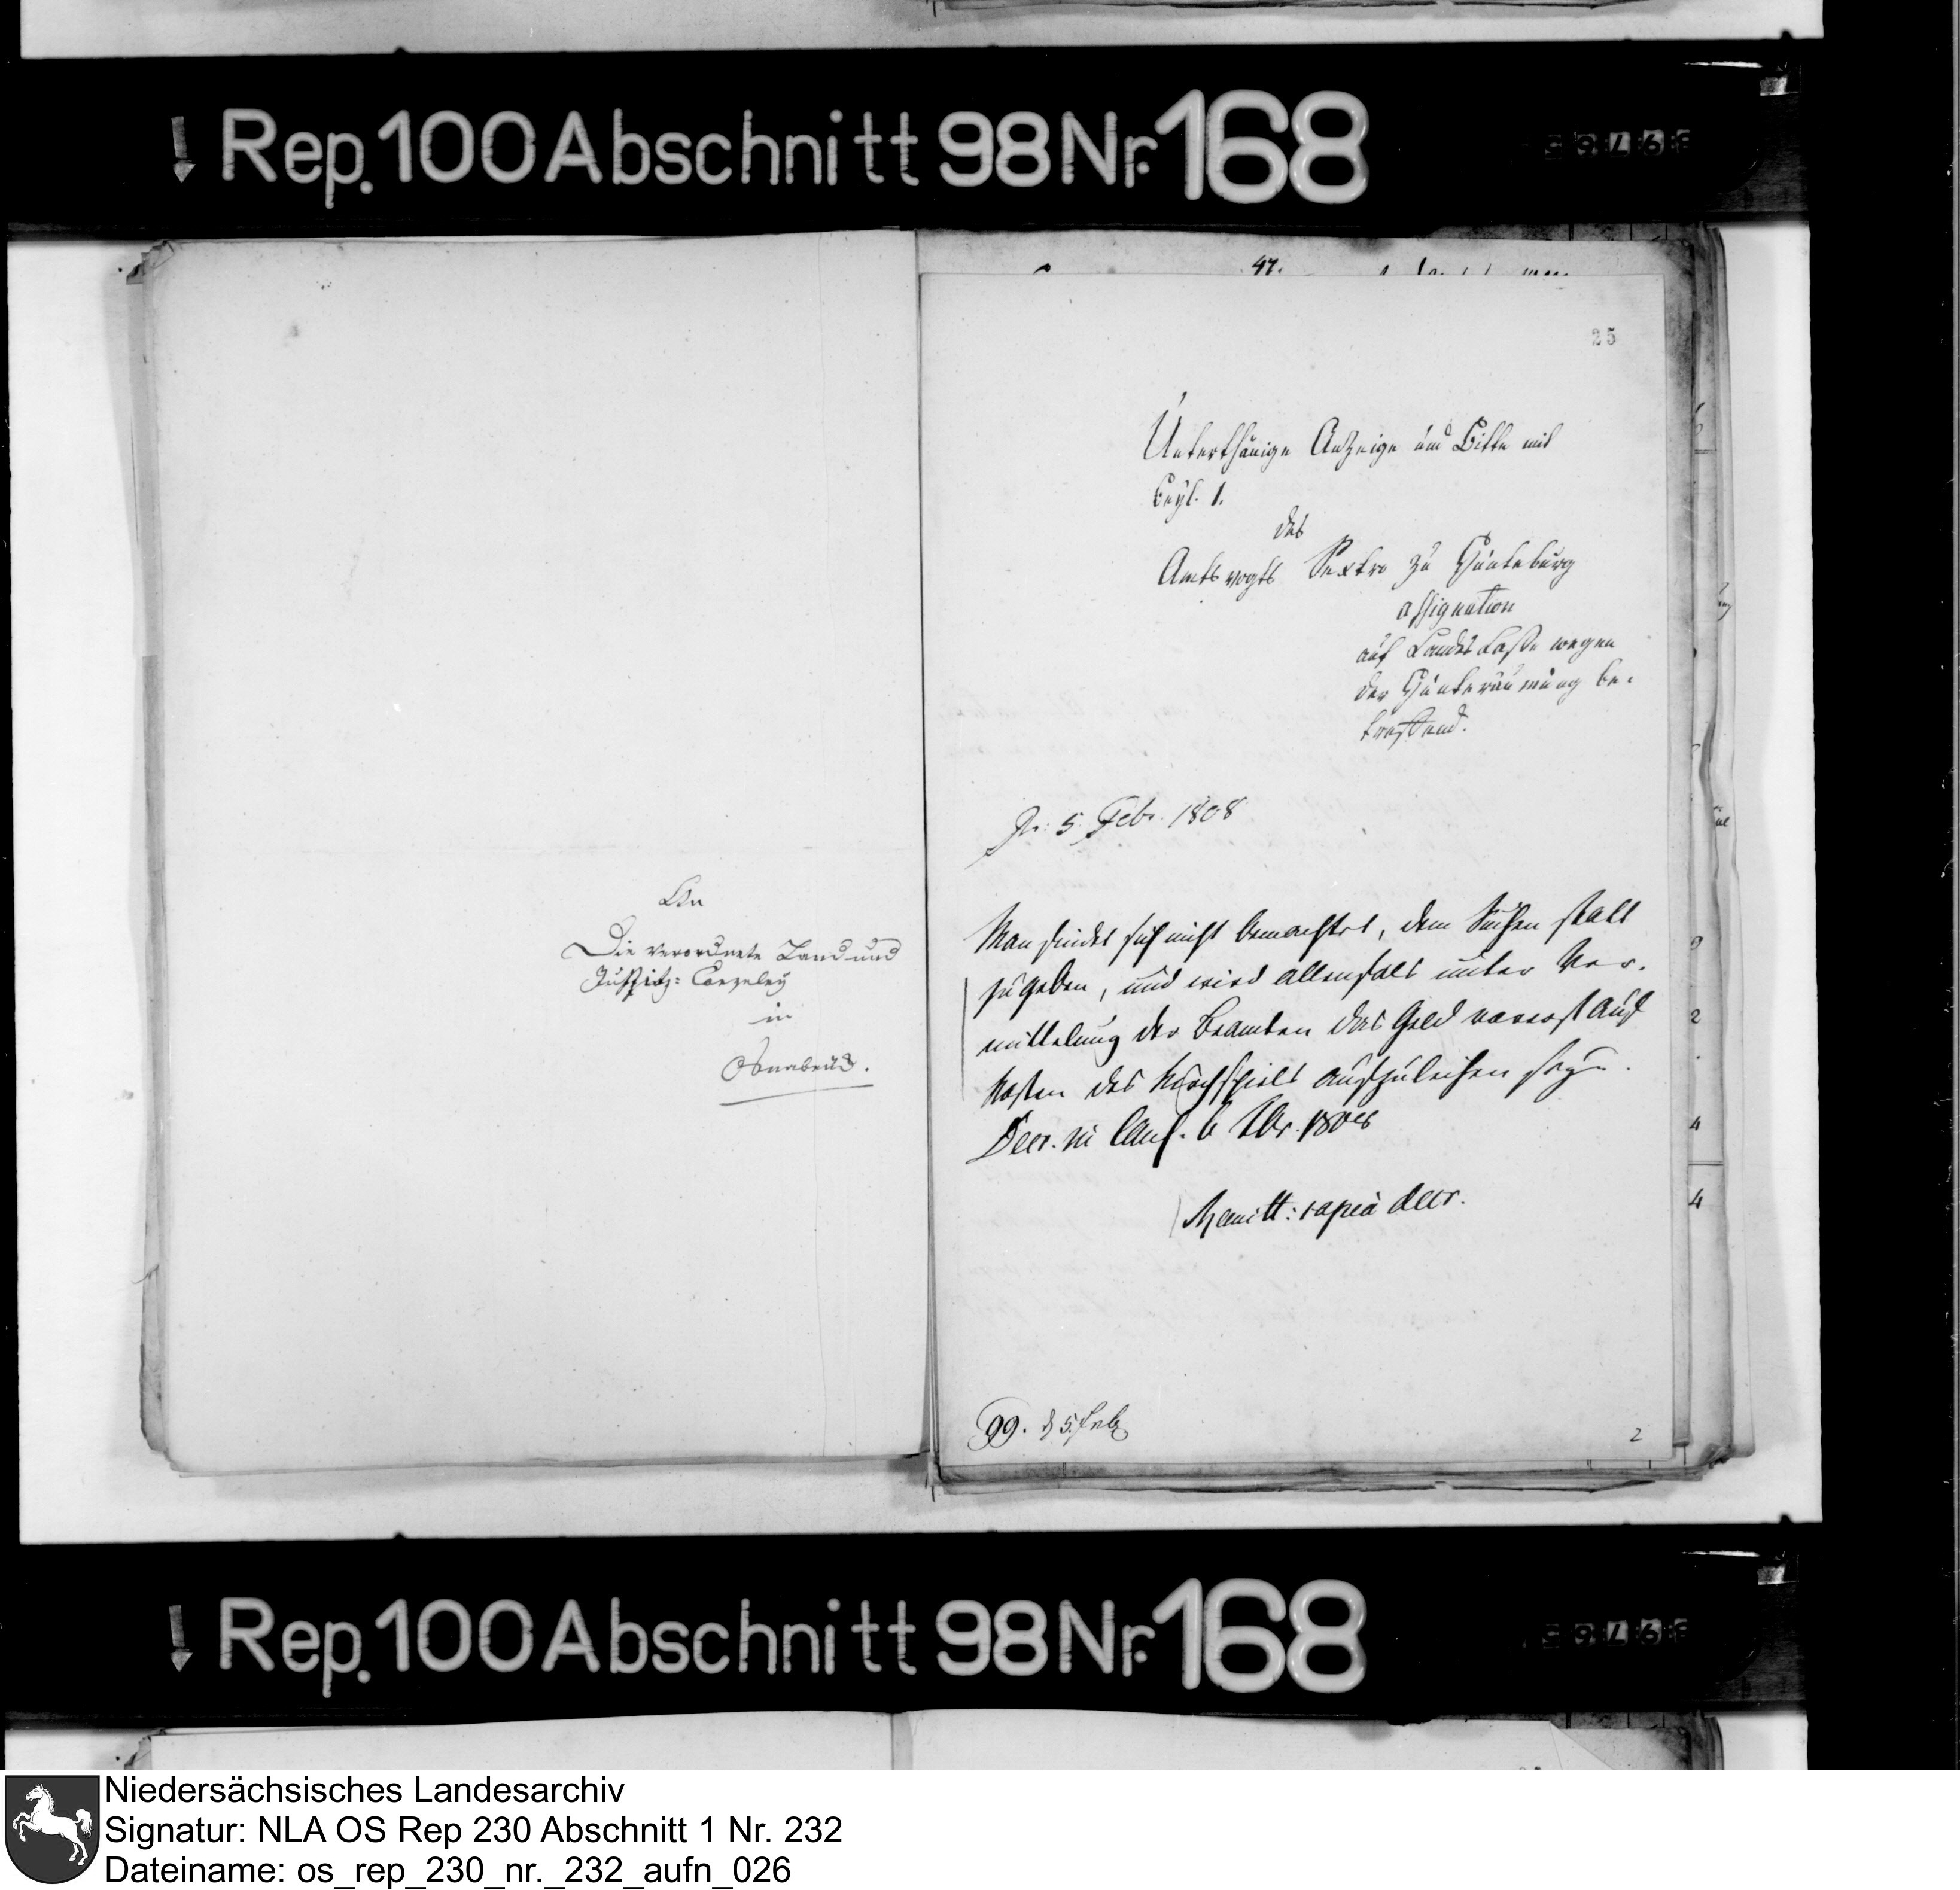 Rep. 100 Abschnitt 98 Nr. 168
47.
25
An
Die verordnete Land und
Justitz: Canzeley
in
Osnabrück.
Unterthänige Anzeige und Bitte mit
Beyl. 1.
des
Amtsvogts Sextro zu Hunteburg
assignation
auf Landes Casse wegen
der Hunteräumung be-
treffend.
Pr: 5. Febr. 1808
Man findet sich nicht bemächtet, dem Suchen statt
zu geben, und wird allenfalls unter Ver-
mittelung der Beamten das Geld vorerst auf
Kosten des Kirchspiels aufzuleihen seyn.
Decr. in Canc. 6 Febr. 1808
Remitt: copia decr.
99. d 5. Feb.
2
Rep. 100 Abschnitt 98 Nr. 168
Niedersächsisches Landesarchiv
Signatur: NLA OS Rep 230 Abschnitt 1 Nr. 232
Dateiname: os_rep_230_nr._232_aufn_026